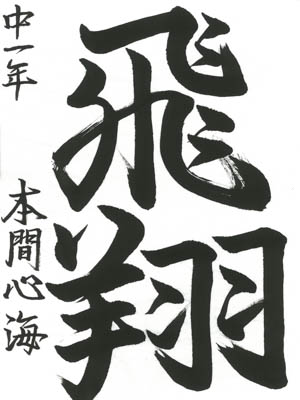 飛翔
中一年 本間心海